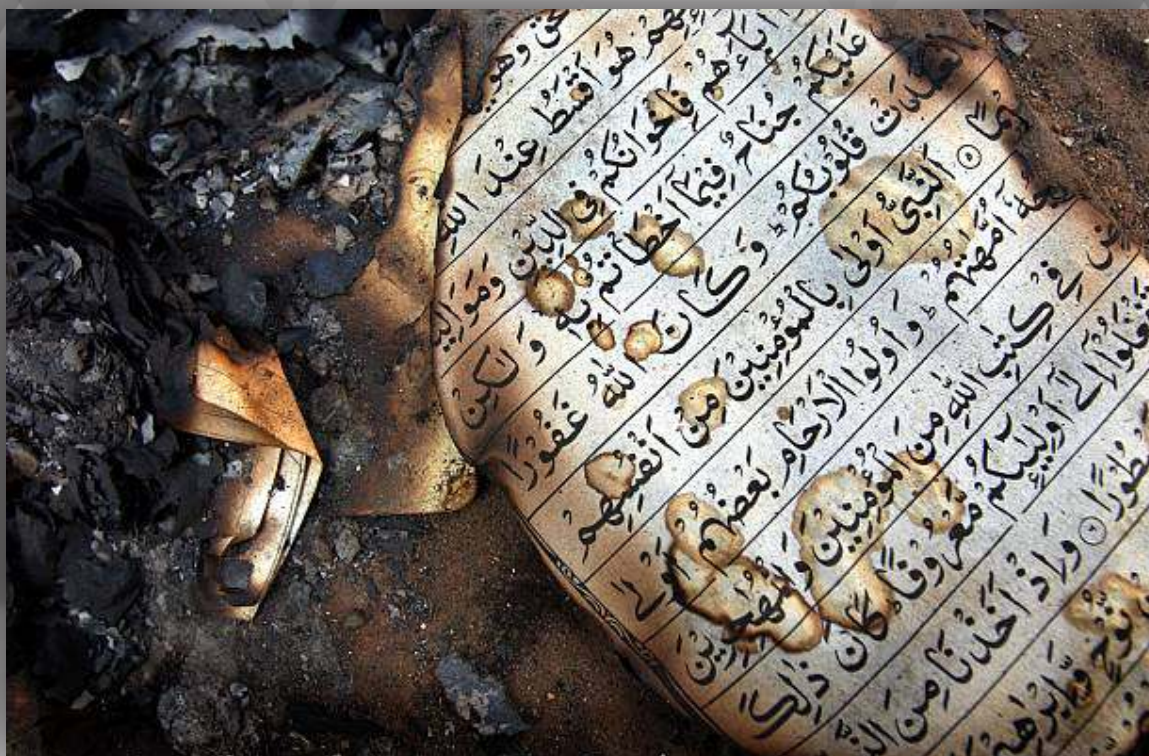 وَهُوَ
هُوَ اَقْسَطُ عِنْدَ اللّٰهِ
هُمْ فَاِخْوَانُكُمْ فِي الدِّيْنِ
عَلَيْكُمْ جُنَاحٌ فِيْمَآ اَخْطَاْتُمْ بِهٖ وَلٰكِنْ
قُلُوْبُكُمْ ؕ وَكَانَ اللّٰهُ غَفُوْرًا
۝۵ اَلنَّبِيُّ اَوْلٰى بِالْمُؤْمِنِيْنَ مِنْ اَنْفُسِهِمْ
اُمَّهٰتُهُمْ ؕ وَاُولُوا الْاَرْحَامِ بَعْضُهُمْ اَوْلٰى
فِيْ كِتٰبِ اللّٰهِ مِنَ الْمُؤْمِنِيْنَ وَالْمُهٰجِرِيْنَ
تَفْعَلُوْٓا اِلٰٓى اَوْلِيٰٓئِكُمْ مَّعْرُوْفًا ؕ كَانَ ذٰلِكَ
۝۶ وَاِذْ اَخَذْنَا مِنَ
نُّوْحٍ وَّاِبْرٰهِيْمَ